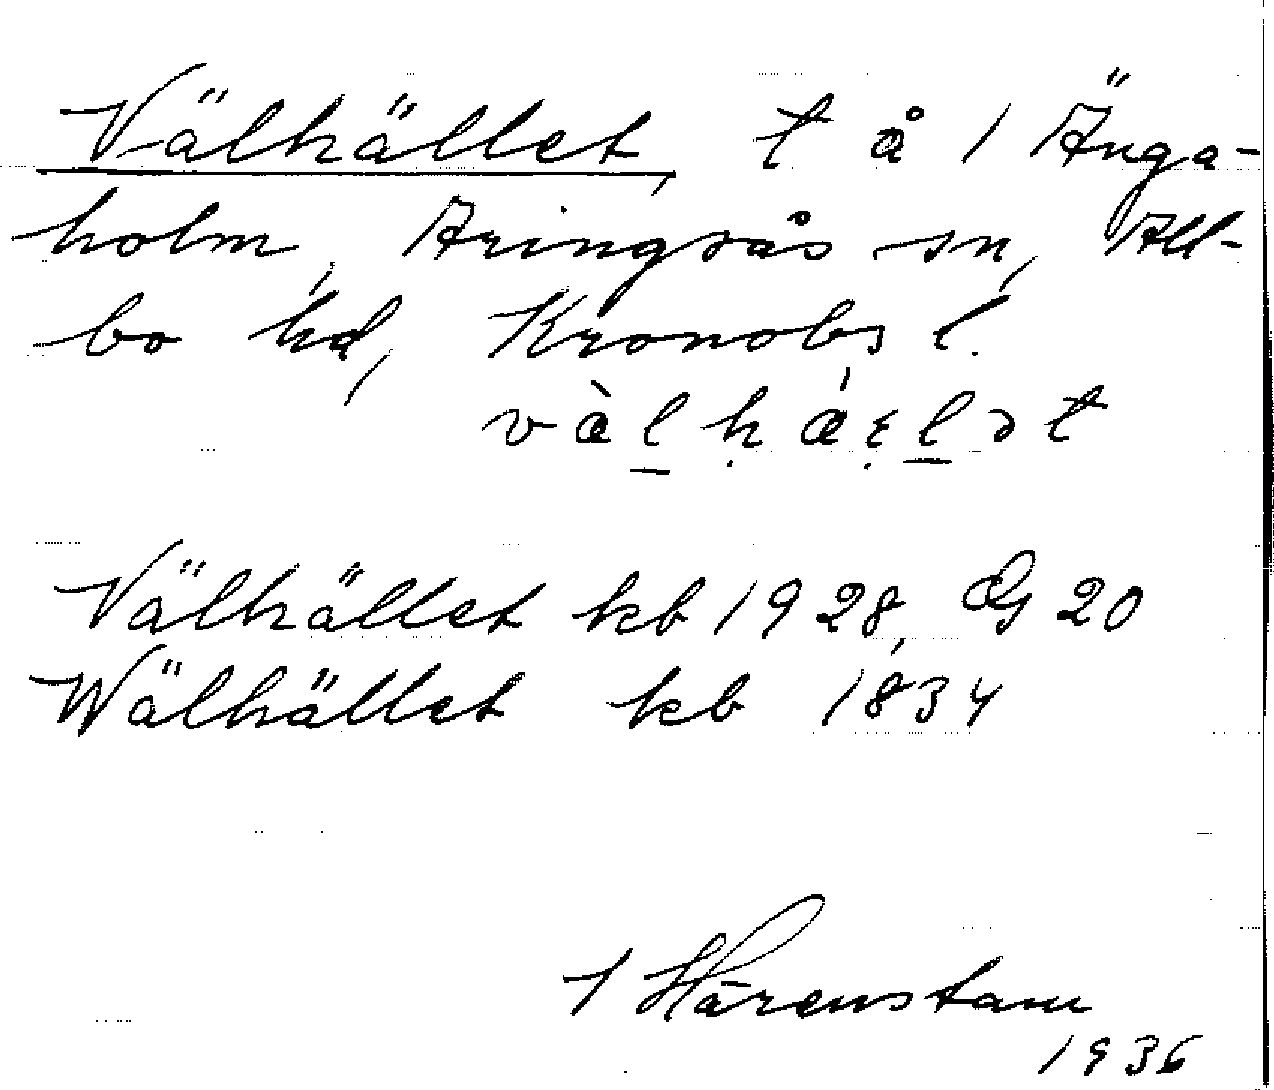 Välhället, t å 1 Änga-
holm, Aringsås sn, All-
bo hd, Kronobs l.
Välhället kb 1928, GS 20
Wälhället kb 1834
I Härenstam
1936